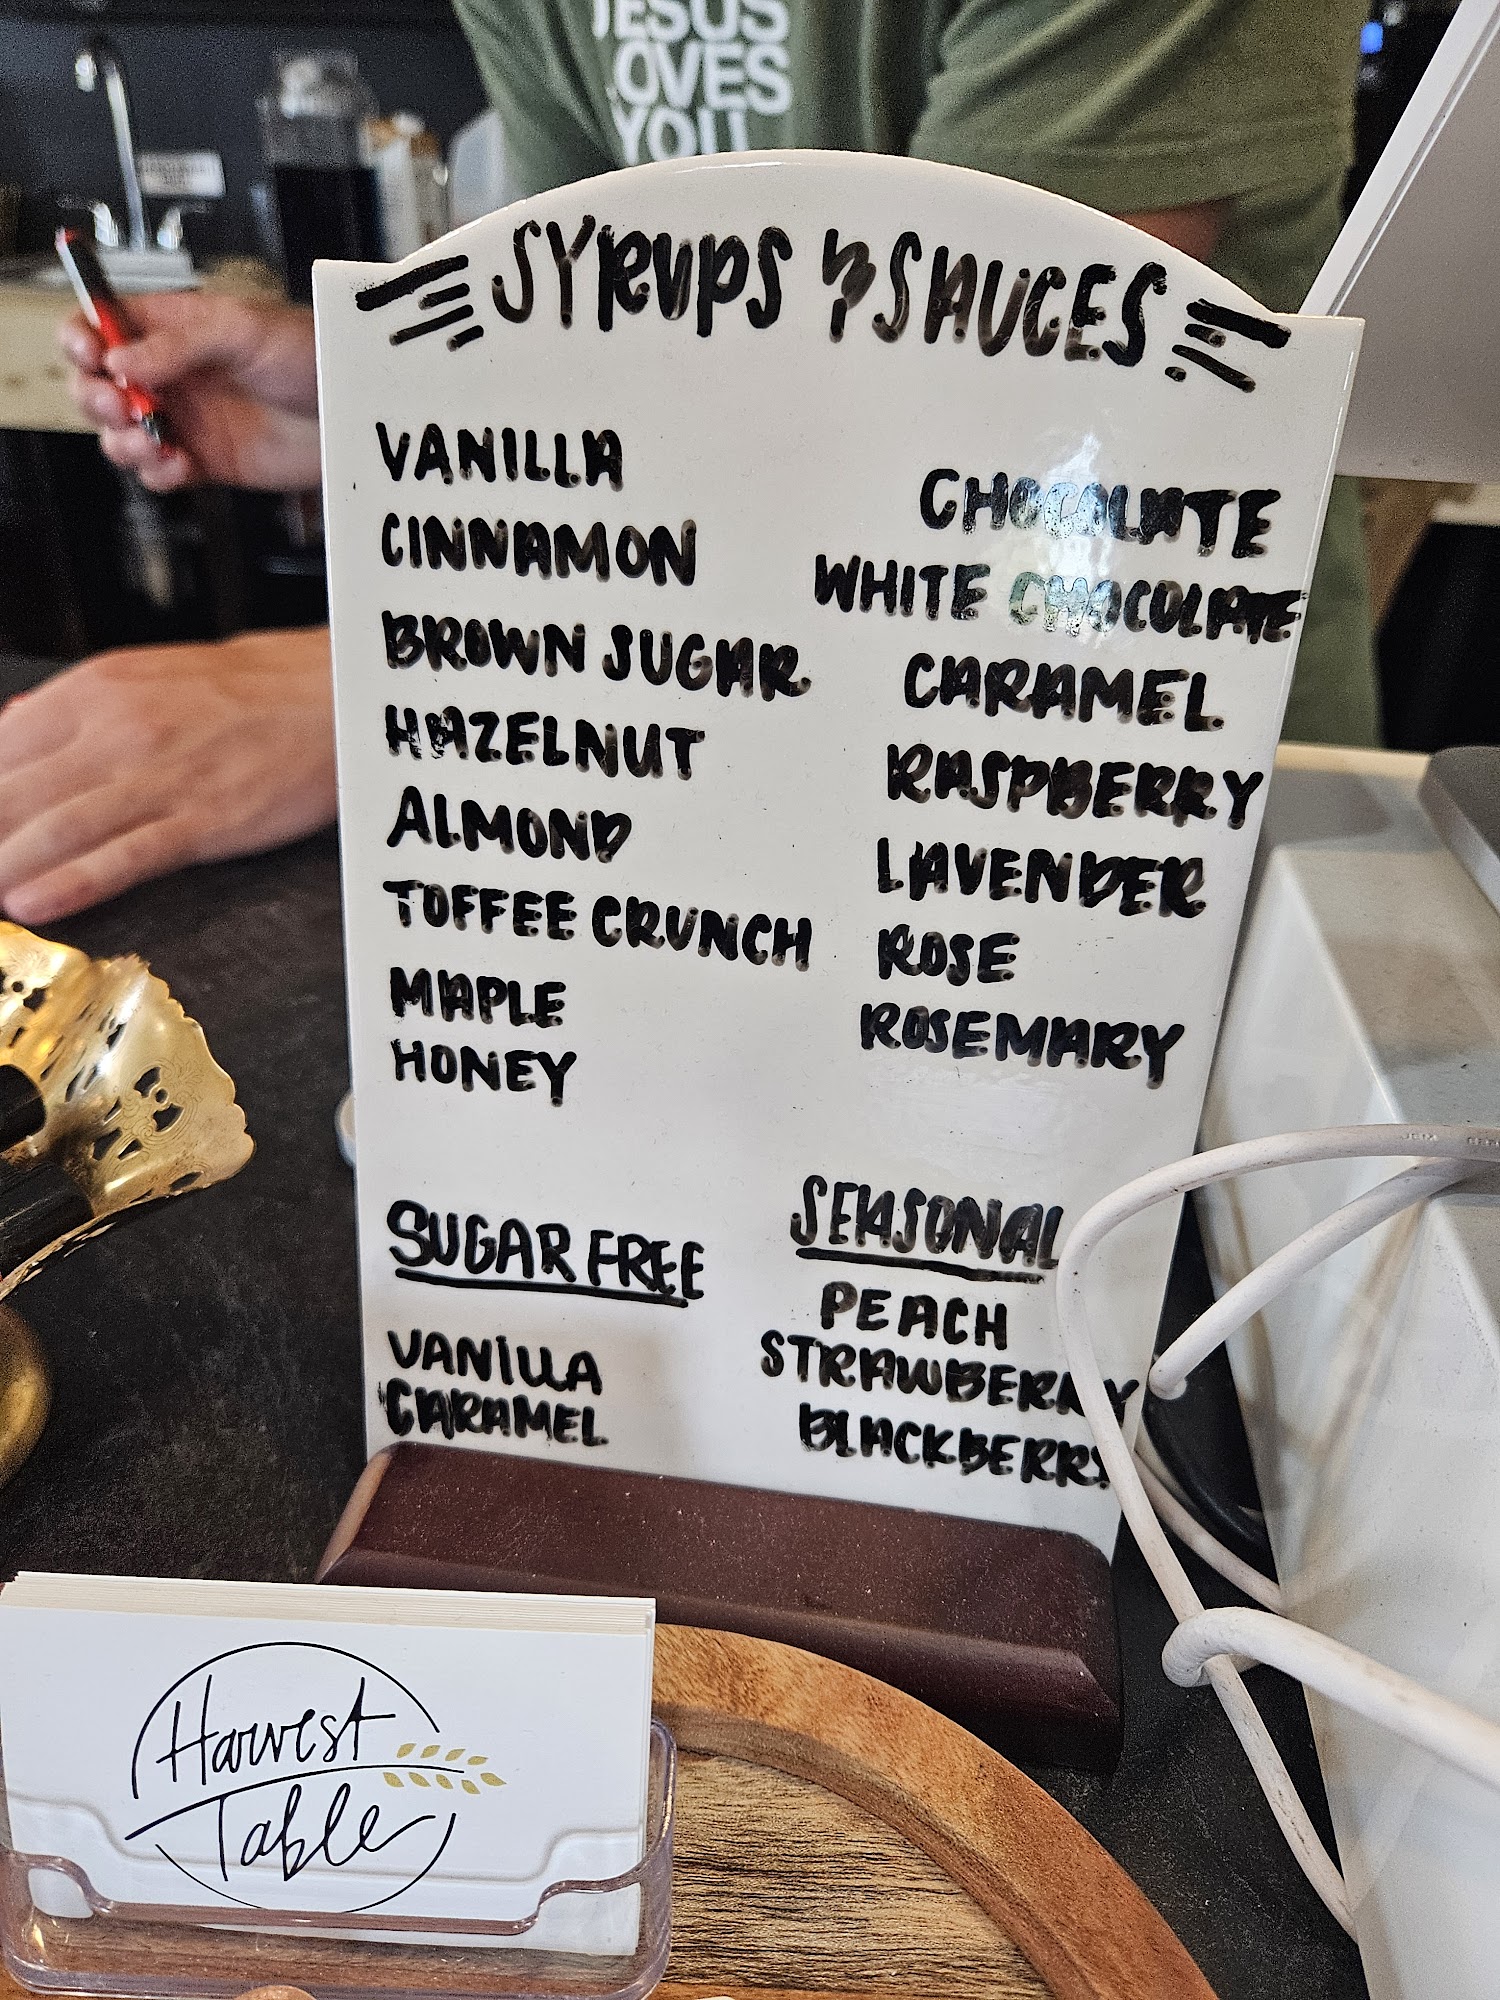 JESUS
LOVES
YOU
SYRUPS & SAUCES
VANILLA
CINNAMON
BROWN SUGAR
HAZELNUT
ALMOND
TOFFEE CRUNCH
MAPLE
HONEY
CHOCOLATE
WHITE CHOCOLATE
CARAMEL
RASPBERRY
LAVENDER
ROSE
ROSEMARY
SUGAR FREE
VANILLA
CARAMEL
SEASONAL
PEACH
STRAWBERRY
BLACKBERRY
Harvest
Table